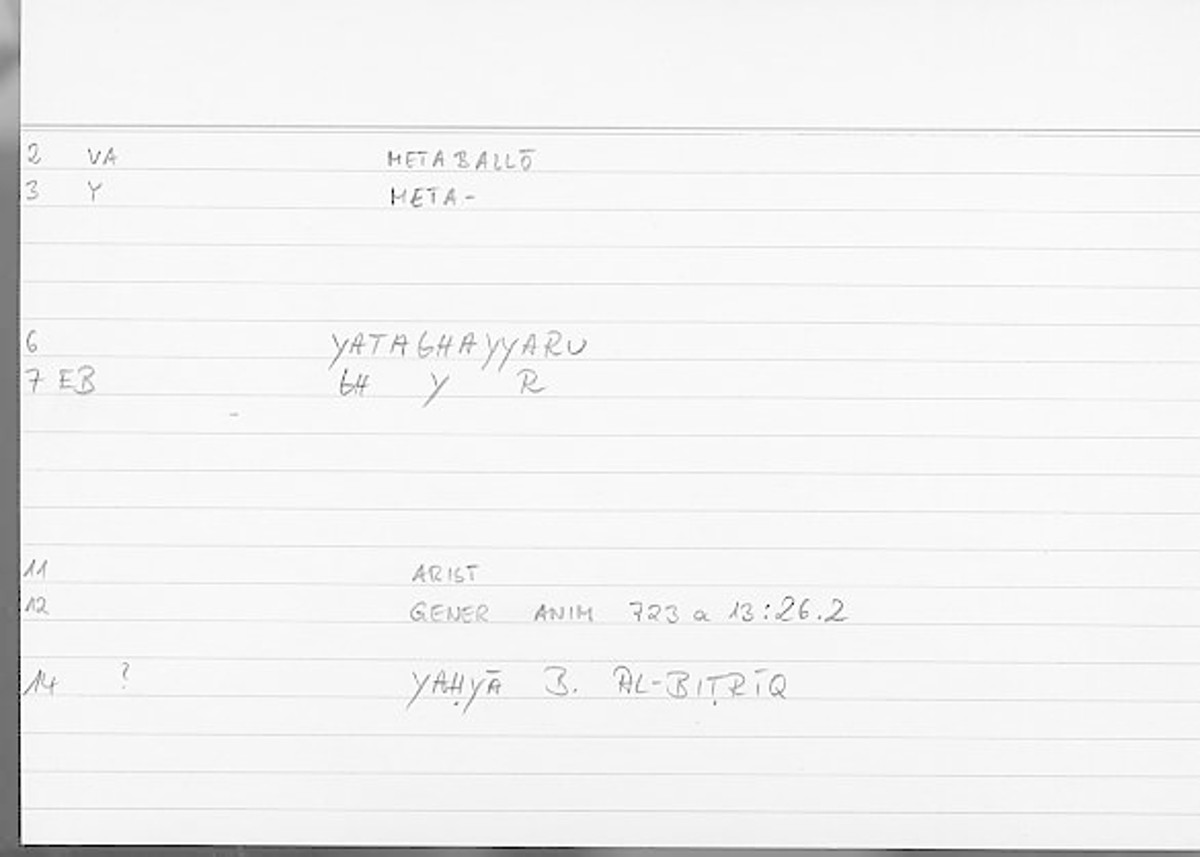 2 VA METABALLŌ
3 Y META-
6 YATAGHAYYARU
7 EB GH Y R
11 ARIST
12 GENER ANIM 723 a 13:26.2
14 ? YAḤYĀ B. AL-BIṬRĪQ